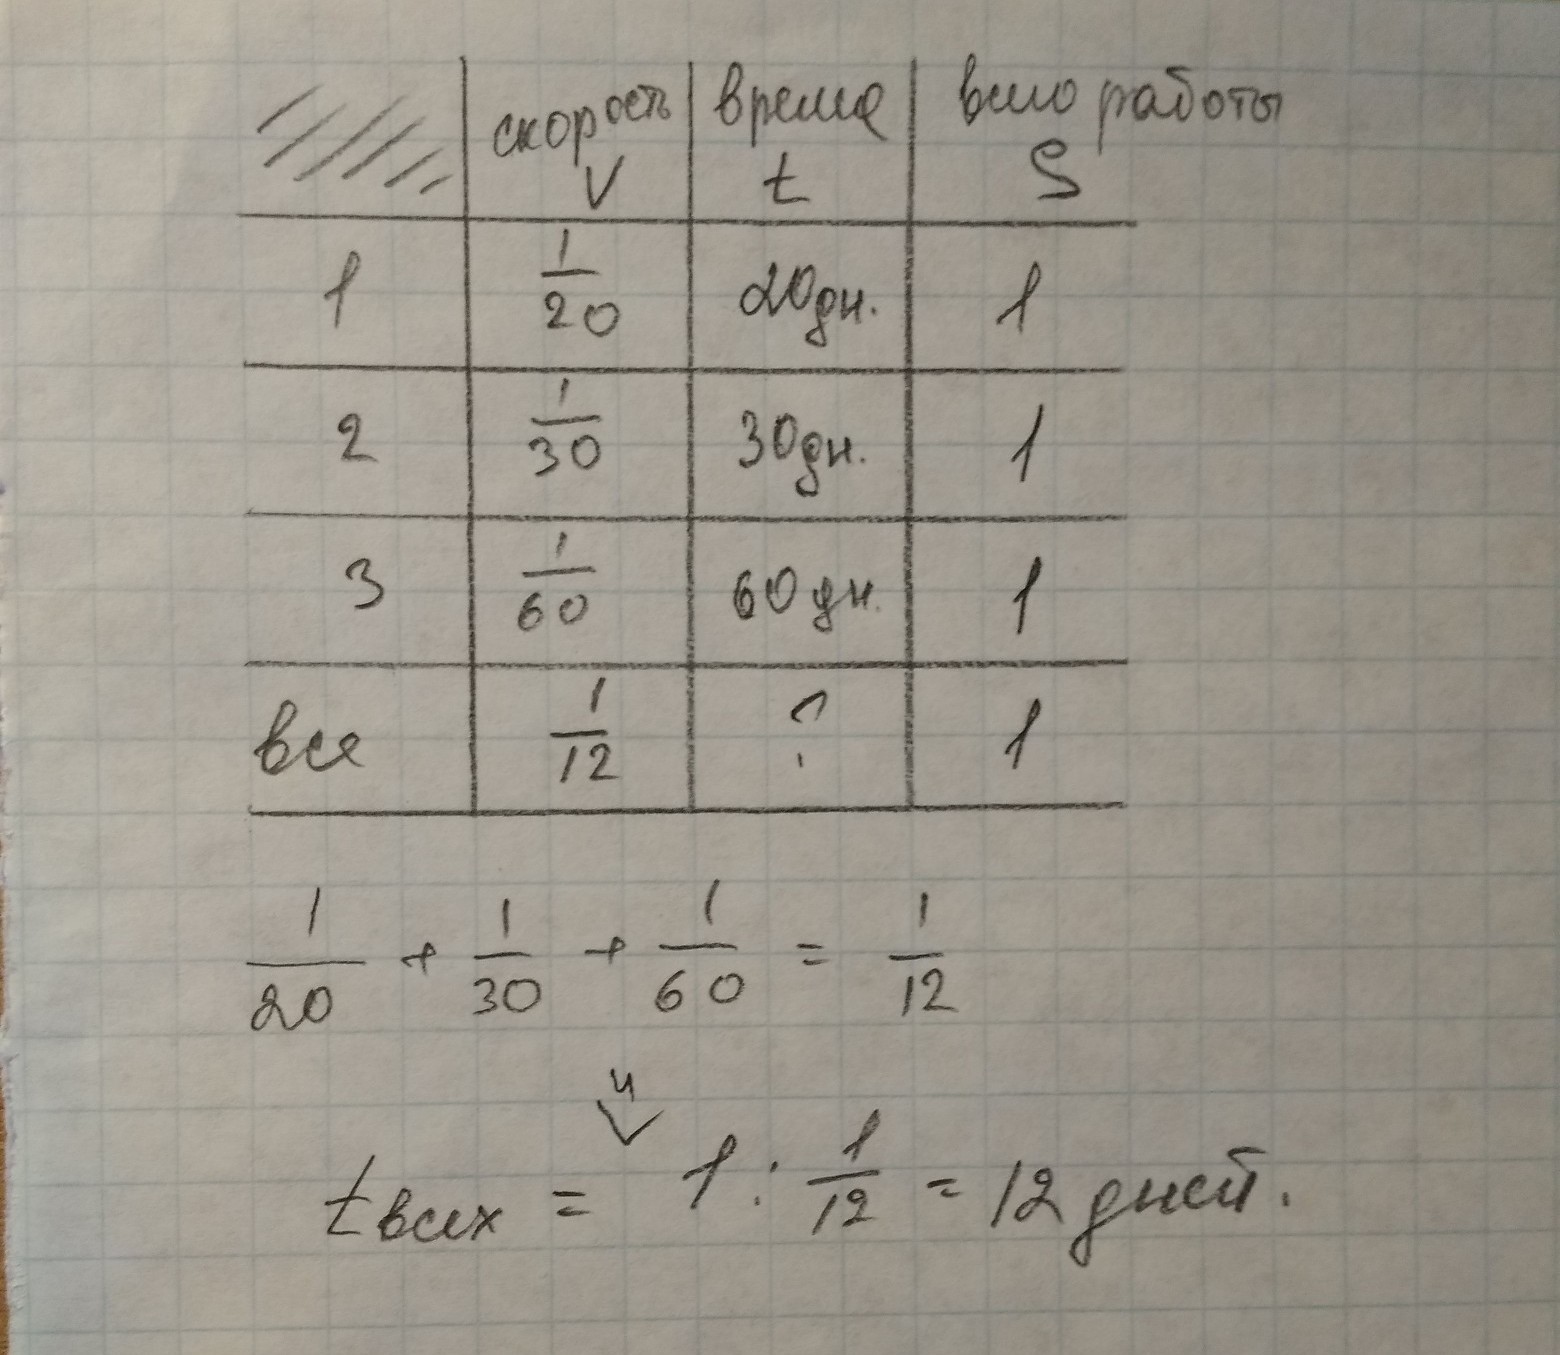 скорость V время t всего работы S
1 1/20 20дн. 1
2 1/30 30дн. 1
3 1/60 60дн. 1
все 1/12 ? 1
1/20 + 1/30 + 1/60 = 1/12
t всех = 1 : 1/12 = 12 дней.